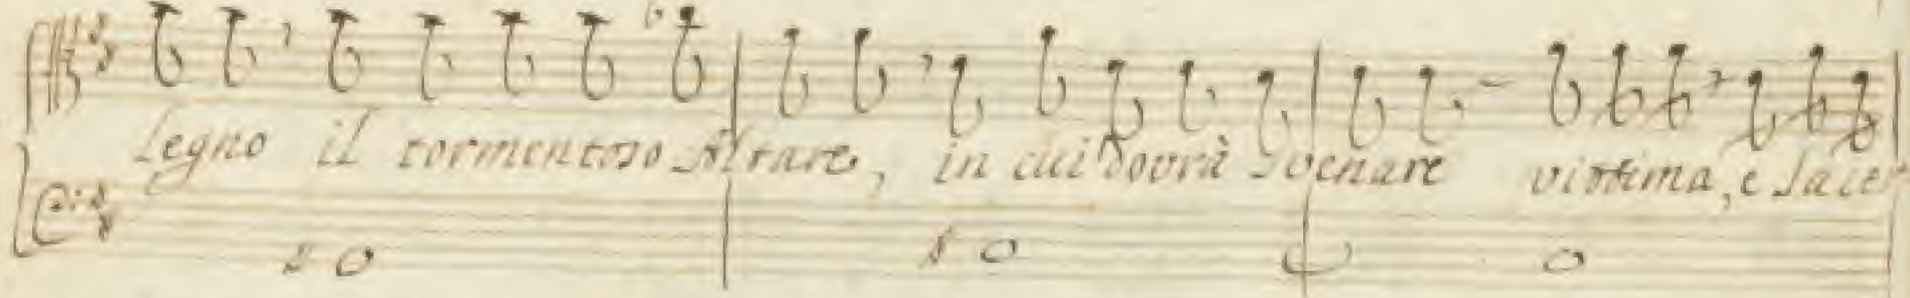 Legno il tormentoso Altare, in cui dovrà Svenare vittima, e Sacer